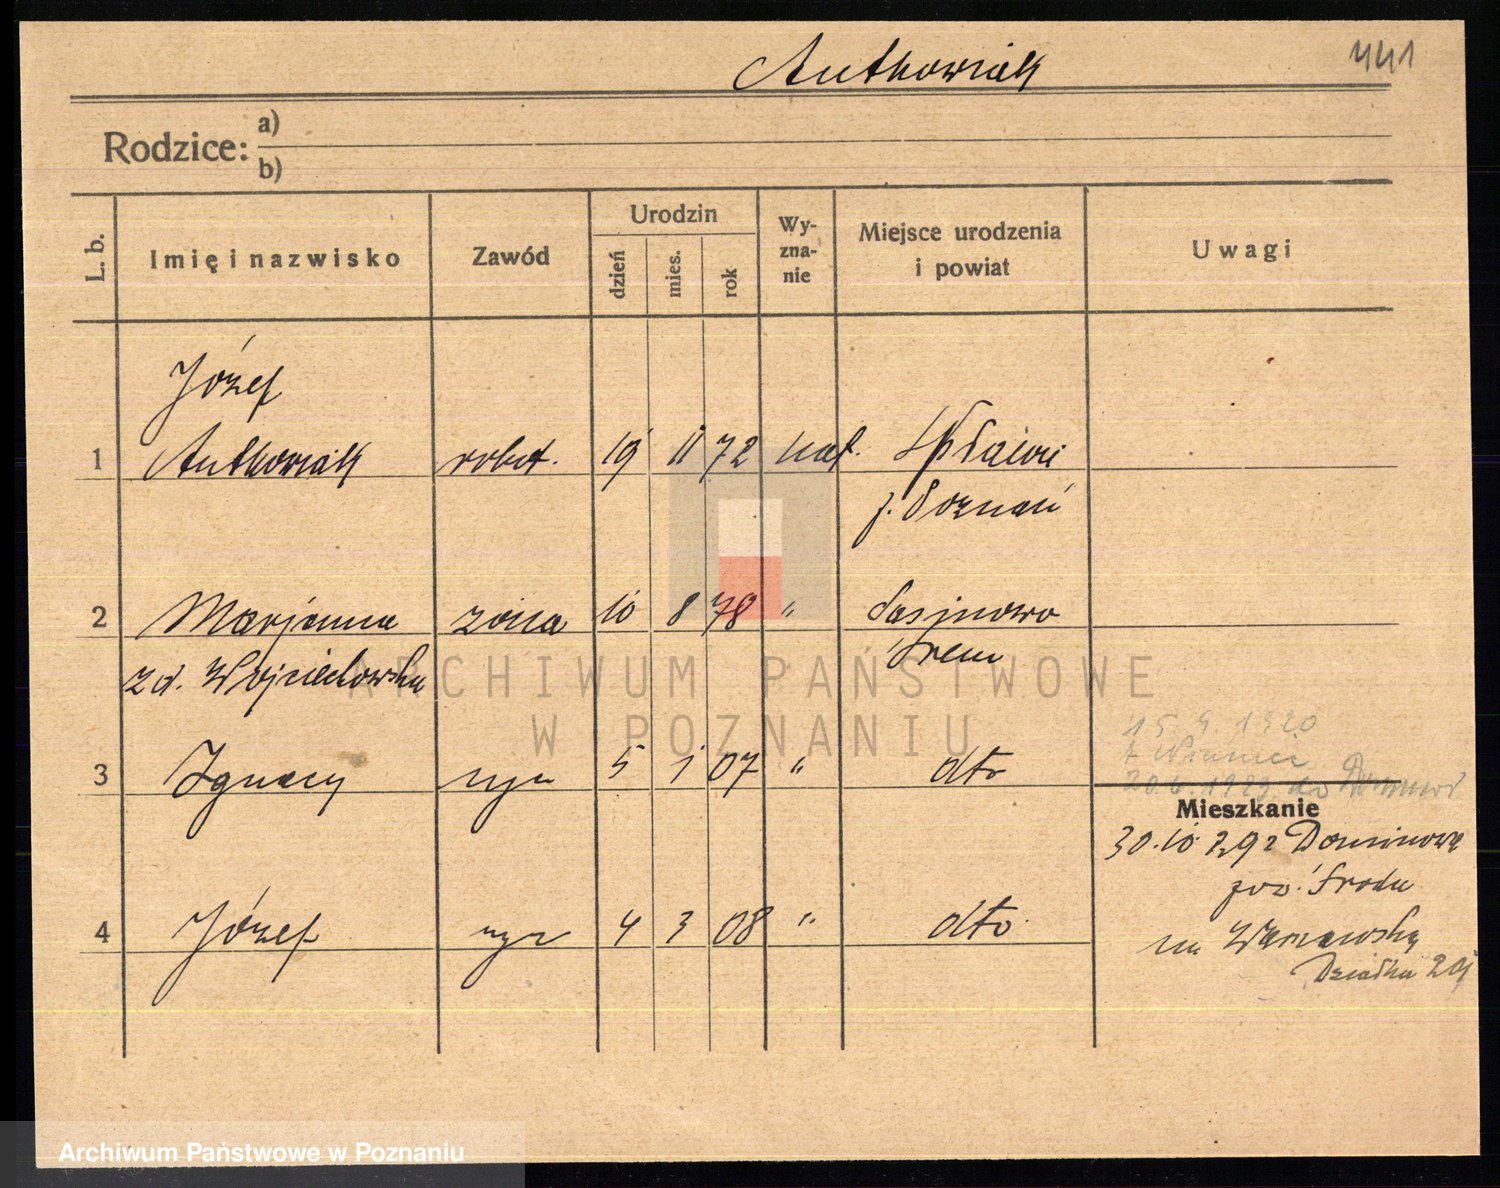 Antkowiak 441
Rodzice: a)
b)
L. b.
Imię i nazwisko
Zawód
Urodzin
dzień
mies.
rok
Wy-
zna-
nie
Miejsce urodzenia
i powiat
Uwagi
Józef
1 Antkowiak robot. 19 11 72 kat. Spławie
p. Poznań
2 Marjanna żona 10 8 78 " Sasinowo
zd. Wojciechowska Śrem
15. 9. 1920
3 Ignacy syn 5 1 07 " dto
Mieszkanie
30.10.29 z Dominowa
pow. Środa
4 Józef syn 4 3 08 " dto.
na Warszawską
Działka
ARCHIWUM PAŃSTWOWE
W POZNANIU
Archiwum Państwowe w Poznaniu